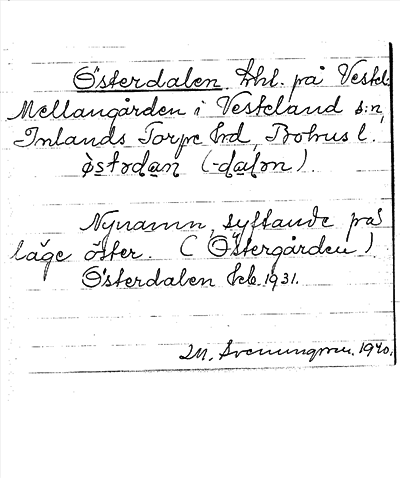 Österdalen. lht. på Vestel.
Mellangården i Vesteland s:n,
Inlands Torpe hrd, Bohusl.
östodan (-dalon).
Nynamn, syftande på
läge öster. (Östergården).
Österdalen Jeb. 1931.
M. Svenungsson. 1940.